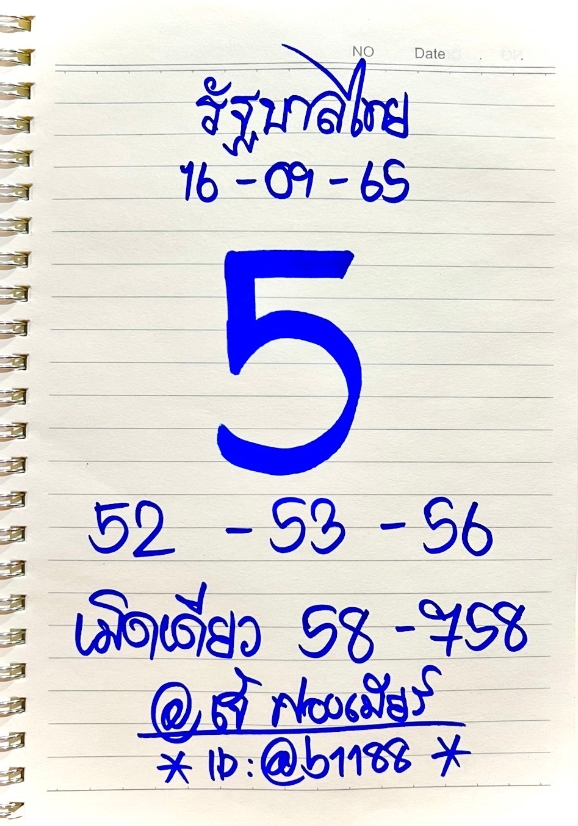 NO Date
รัฐบาลไทย
16-09-65
5
52 - 53 - 56
เม็ดเดียว 58-758
@ เจ๊
* ID:@b1188 *